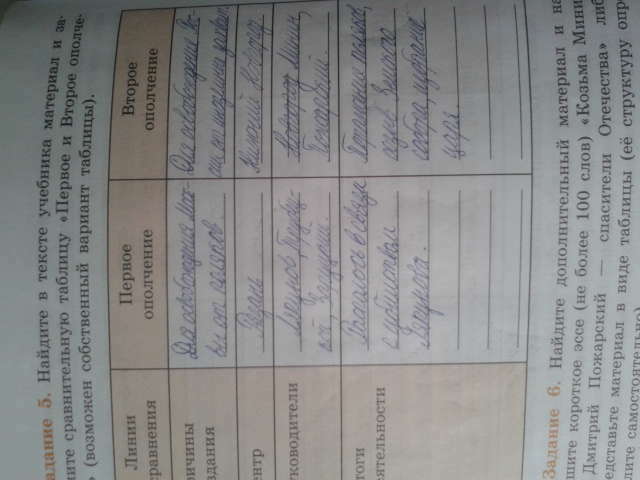 адание 5. Найдите в тексте учебника материал и за-
ните сравнительную таблицу «Первое и Второе ополче-
» (возможен собственный вариант таблицы).
Линии
равнения
Первое
ополчение
Второе
ополчение
ричины
здания
Для освобождения Мос-
вы от поляков
Для освобождения
ентр
Рязань
Нижний Новгород
ководители
Ляпунов, Трубец-
кой, Заруцкий.
Минин,
Пожарский.
тоги
ятельности
Распалось в связи
с убийством
Ляпунова.
собор, избрание
царя.
Задание 6. Найдите дополнительный материал и на
шите короткое эссе (не более 100 слов) «Козьма Мини
Дмитрий Пожарский — спасители Отечества» либ
едставьте материал в виде таблицы (её структуру опр
лите самостоятельно)